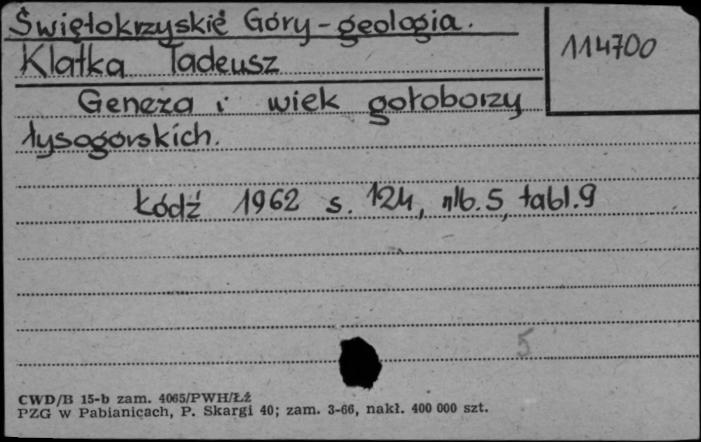 Świętokrzyskie Góry - geologia.
114700
Klatka Tadeusz
Geneza i wiek gołoborzy
łysogorskich.
Łódź 1962 s. 124, nlb. 5, tabl. 9
5
CWD/B 15-b zam. 4065/PWH/ŁŻ
PZG w Pabianicach, P. Skargi 40; zam. 3-66, nakł. 400 000 szt.